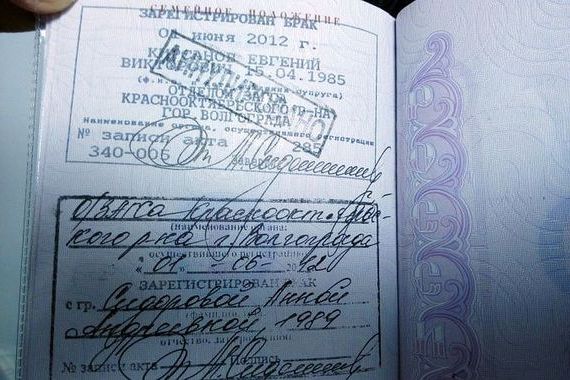 СЕМЕЙНОЕ ПОЛОЖЕНИЕ
ЗАРЕГИСТРИРОВАН БРАК
01 июня 2012 г.
ЕВГЕНИЙ
15.04.1985
супруга)
ОТДЕЛОМ
КРАСНООКТЯБРЬСКОГО Р-НА
ГОР. ВОЛГОГРАДА
наименование органа, осуществившего регистрацию
№ записи акта 285
340-006
ОЗАГСа Краснооктябрьс-
кого р-на г. Волгограда
(наименование органа,
осуществившего регистрацию)
" 01 " - 06 -
ЗАРЕГИСТРИРОВАН БРАК
с гр. Сидоровой Анной
Андреевной, 1989
отчество, дата рождения)
№ записи акта Подпись